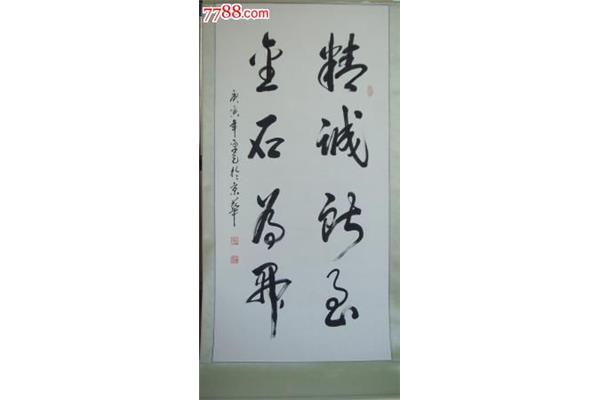 7788.com
精诚所至
金石为开
庚寅年
于京华